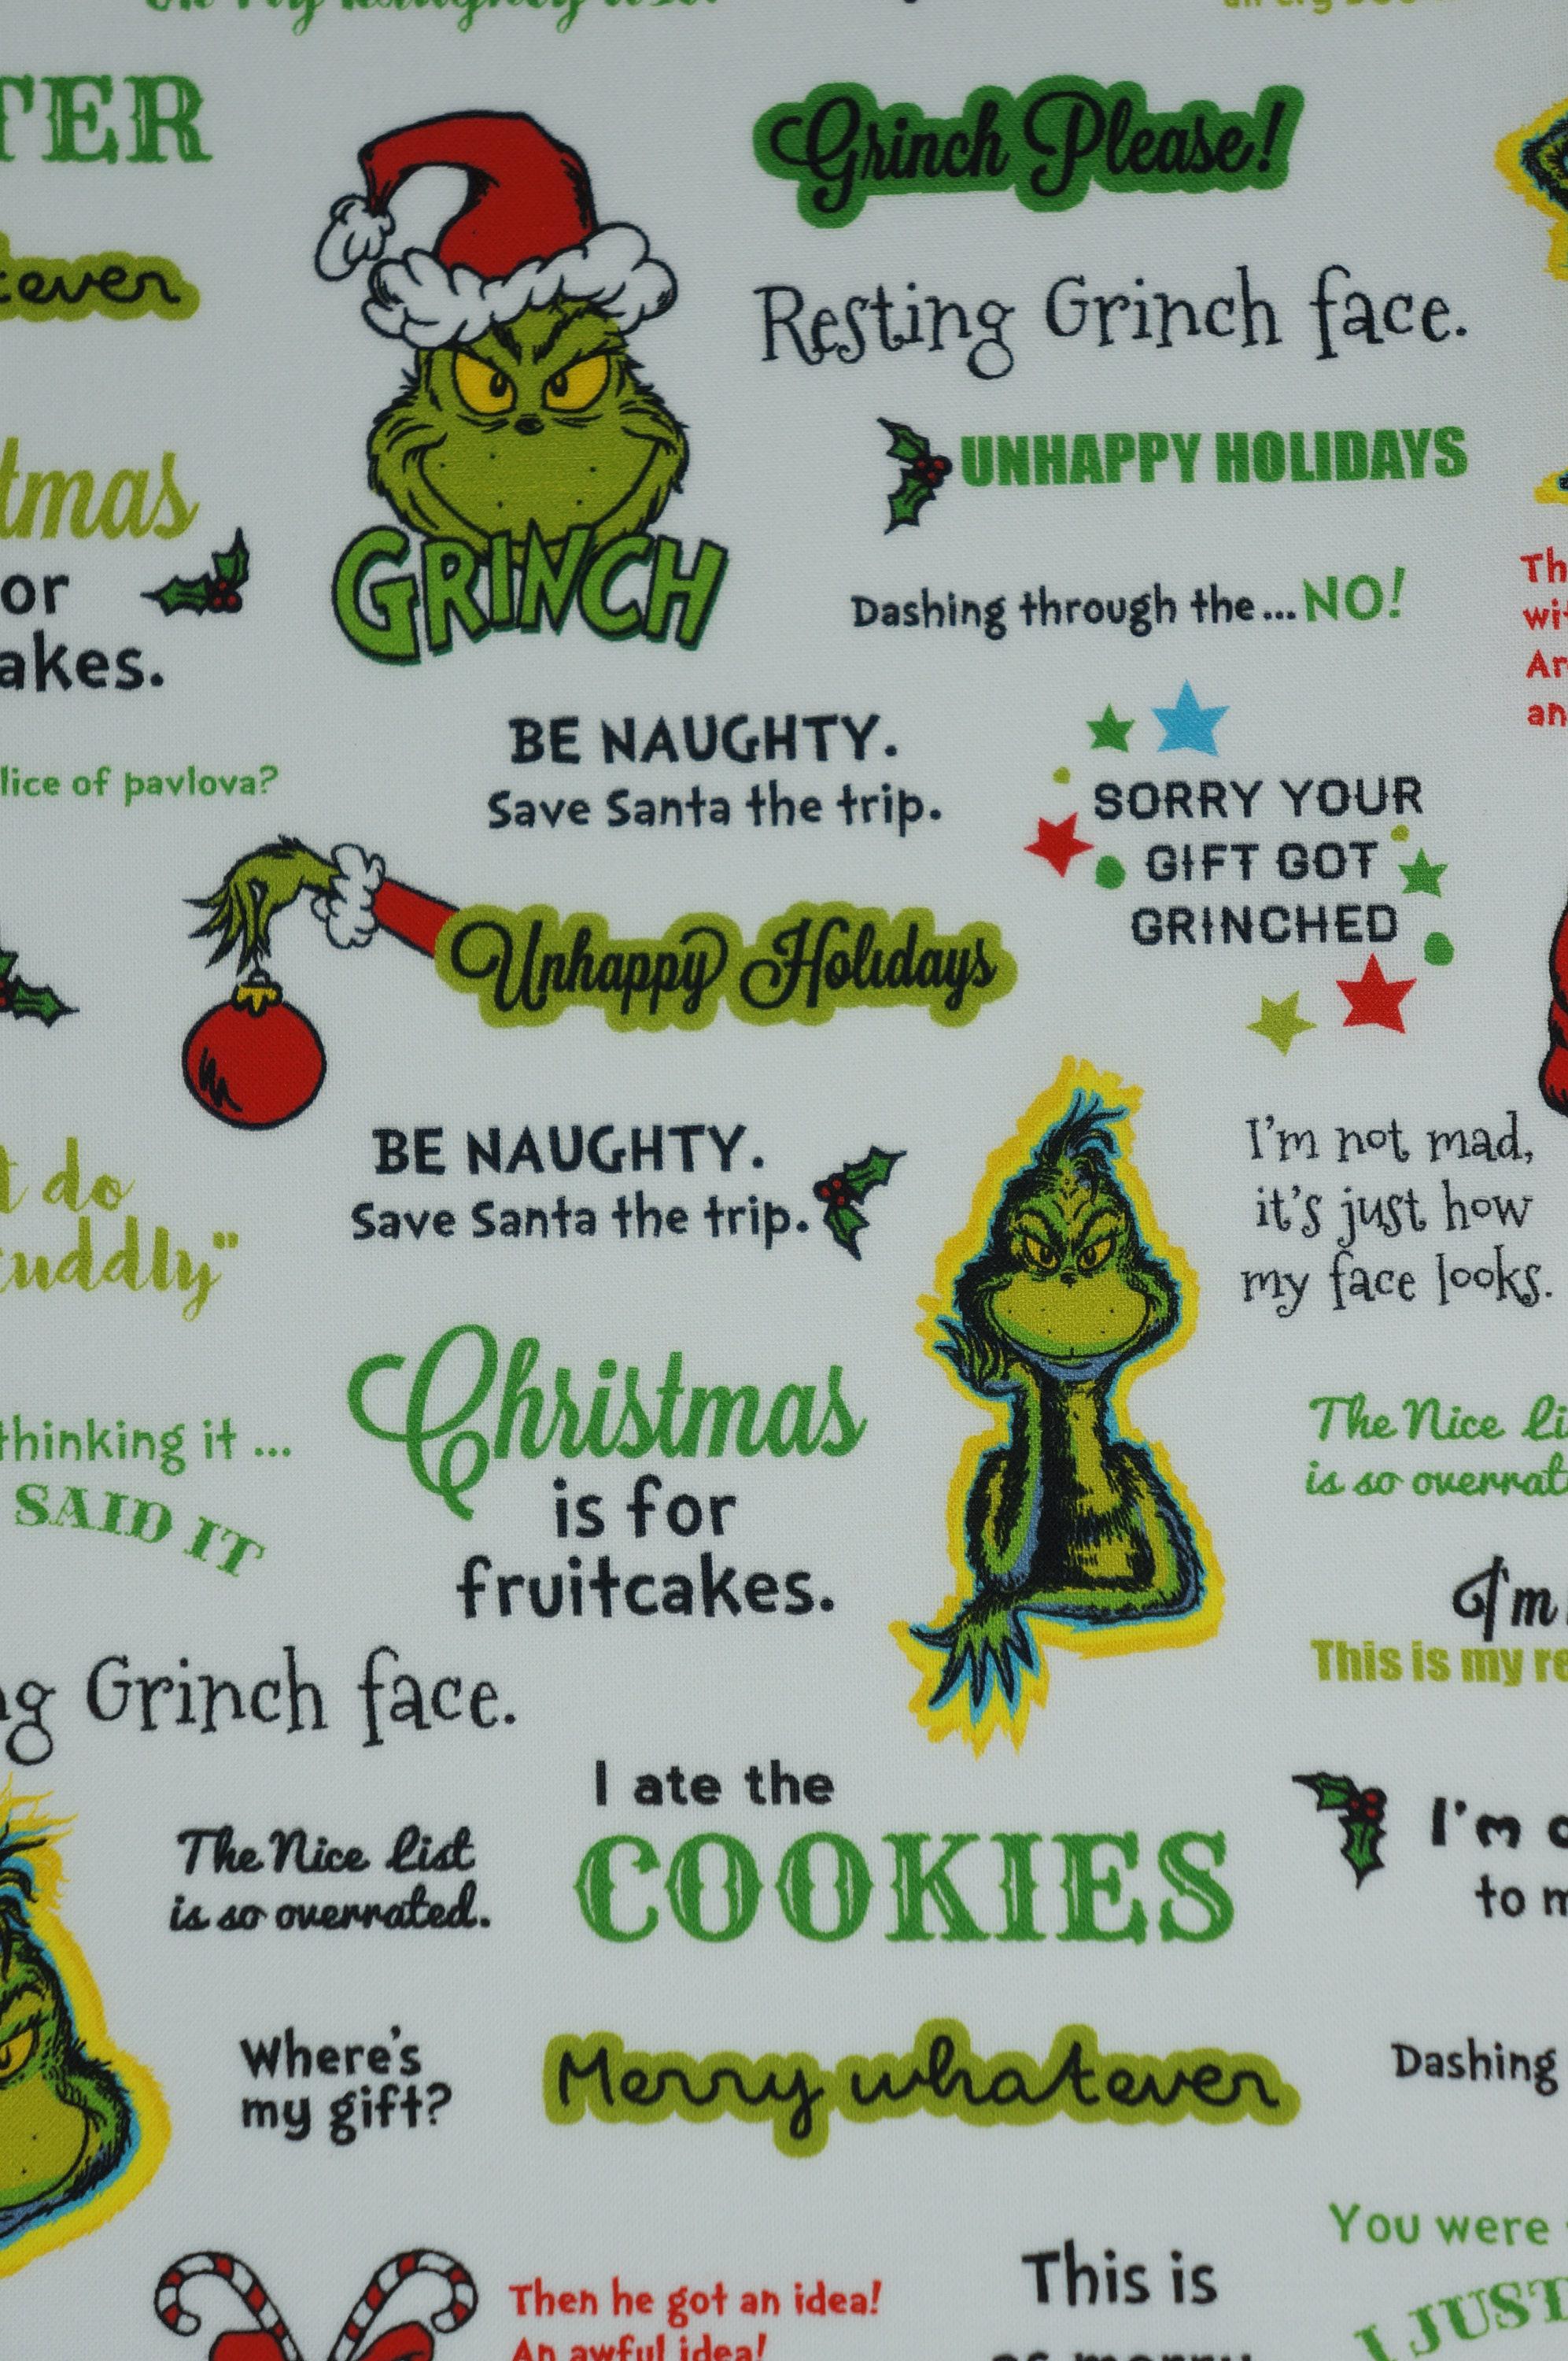 TER
Grinch Please!
tever
Resting Grinch face.
UNHAPPY HOLIDAYS
tmas
or
akes.
GRINCH
Dashing through the... NO!
Th
wi
Ar
an
BE NAUGHTY.
Save Santa the trip.
lice of pavlova?
SORRY YOUR
GIFT GOT
GRINCHED
Unhappy Holidays
BE NAUGHTY.
Save Santa the trip.
I'm not mad,
it's just how
my face looks.
t do
cuddly"
Christmas
is for
fruitcakes.
thinking it ...
SAID IT
The Nice Li
is so overrat
I'm
This is my re
ng Grinch face.
I ate the
COOKIES
The Nice List
is so overrated.
I'm
to m
Where's
my gift?
Merry whatever
Dashing
You were
I JUST
Then he got an idea!
An awful idea!
This is
as merry